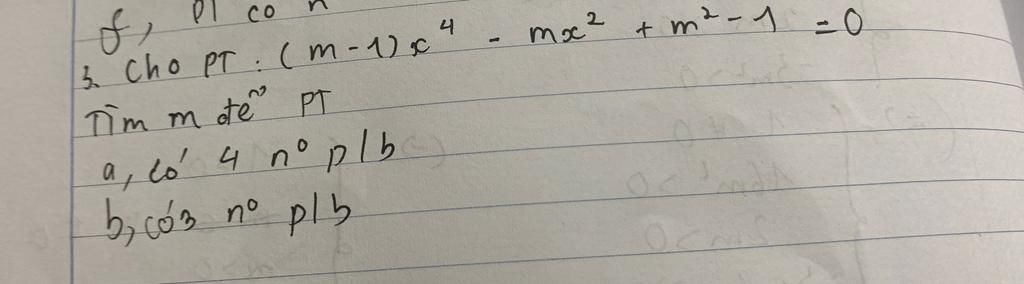 f, pt có n
3. Cho PT : (m-1)x⁴ - mx² + m² - 1 = 0
Tìm m để PT
a, có 4 n⁰ p/b
b, có 3 n⁰ p/b